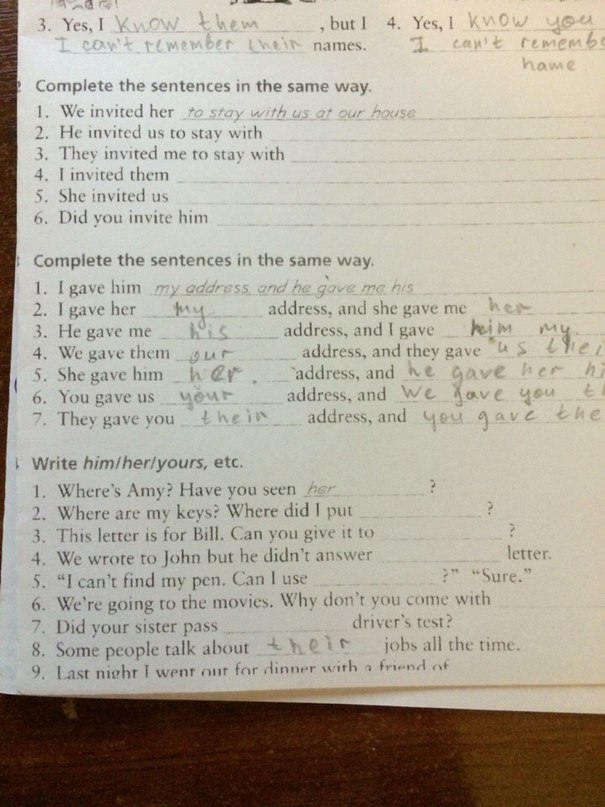 3. Yes, I know them , but I 4. Yes, I know you
I can't remember their names. I can't
name
Complete the sentences in the same way.
1. We invited her to stay with us at our house
2. He invited us to stay with
3. They invited me to stay with
4. I invited them
5. She invited us
6. Did you invite him
Complete the sentences in the same way.
1. I gave him my address, and he gave me his
2. I gave her my address, and she gave me her
3. He gave me his address, and I gave him my
4. We gave them our address, and they gave us
5. She gave him her. address, and he gave her
6. You gave us your address, and We gave you
7. They gave you their address, and you gave
Write him/her/yours, etc.
1. Where's Amy? Have you seen her ?
2. Where are my keys? Where did I put ?
3. This letter is for Bill. Can you give it to ?
4. We wrote to John but he didn't answer letter.
5. "I can't find my pen. Can I use ?" "Sure."
6. We're going to the movies. Why don't you come with
7. Did your sister pass driver's test?
8. Some people talk about their jobs all the time.
9. Last night I went out for dinner with a friend of